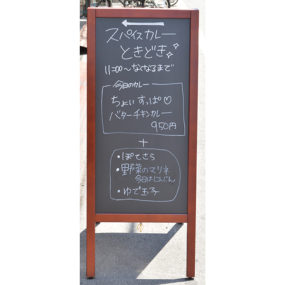 ←
スパイスカレー
ときどき
11:00〜なくなるまで
今日のカレー
ちょい すっぱ♡
バターチキンカレー
950円
+
・ぽてさら
・野菜のマリネ
今日はにんじん
・ゆで玉子